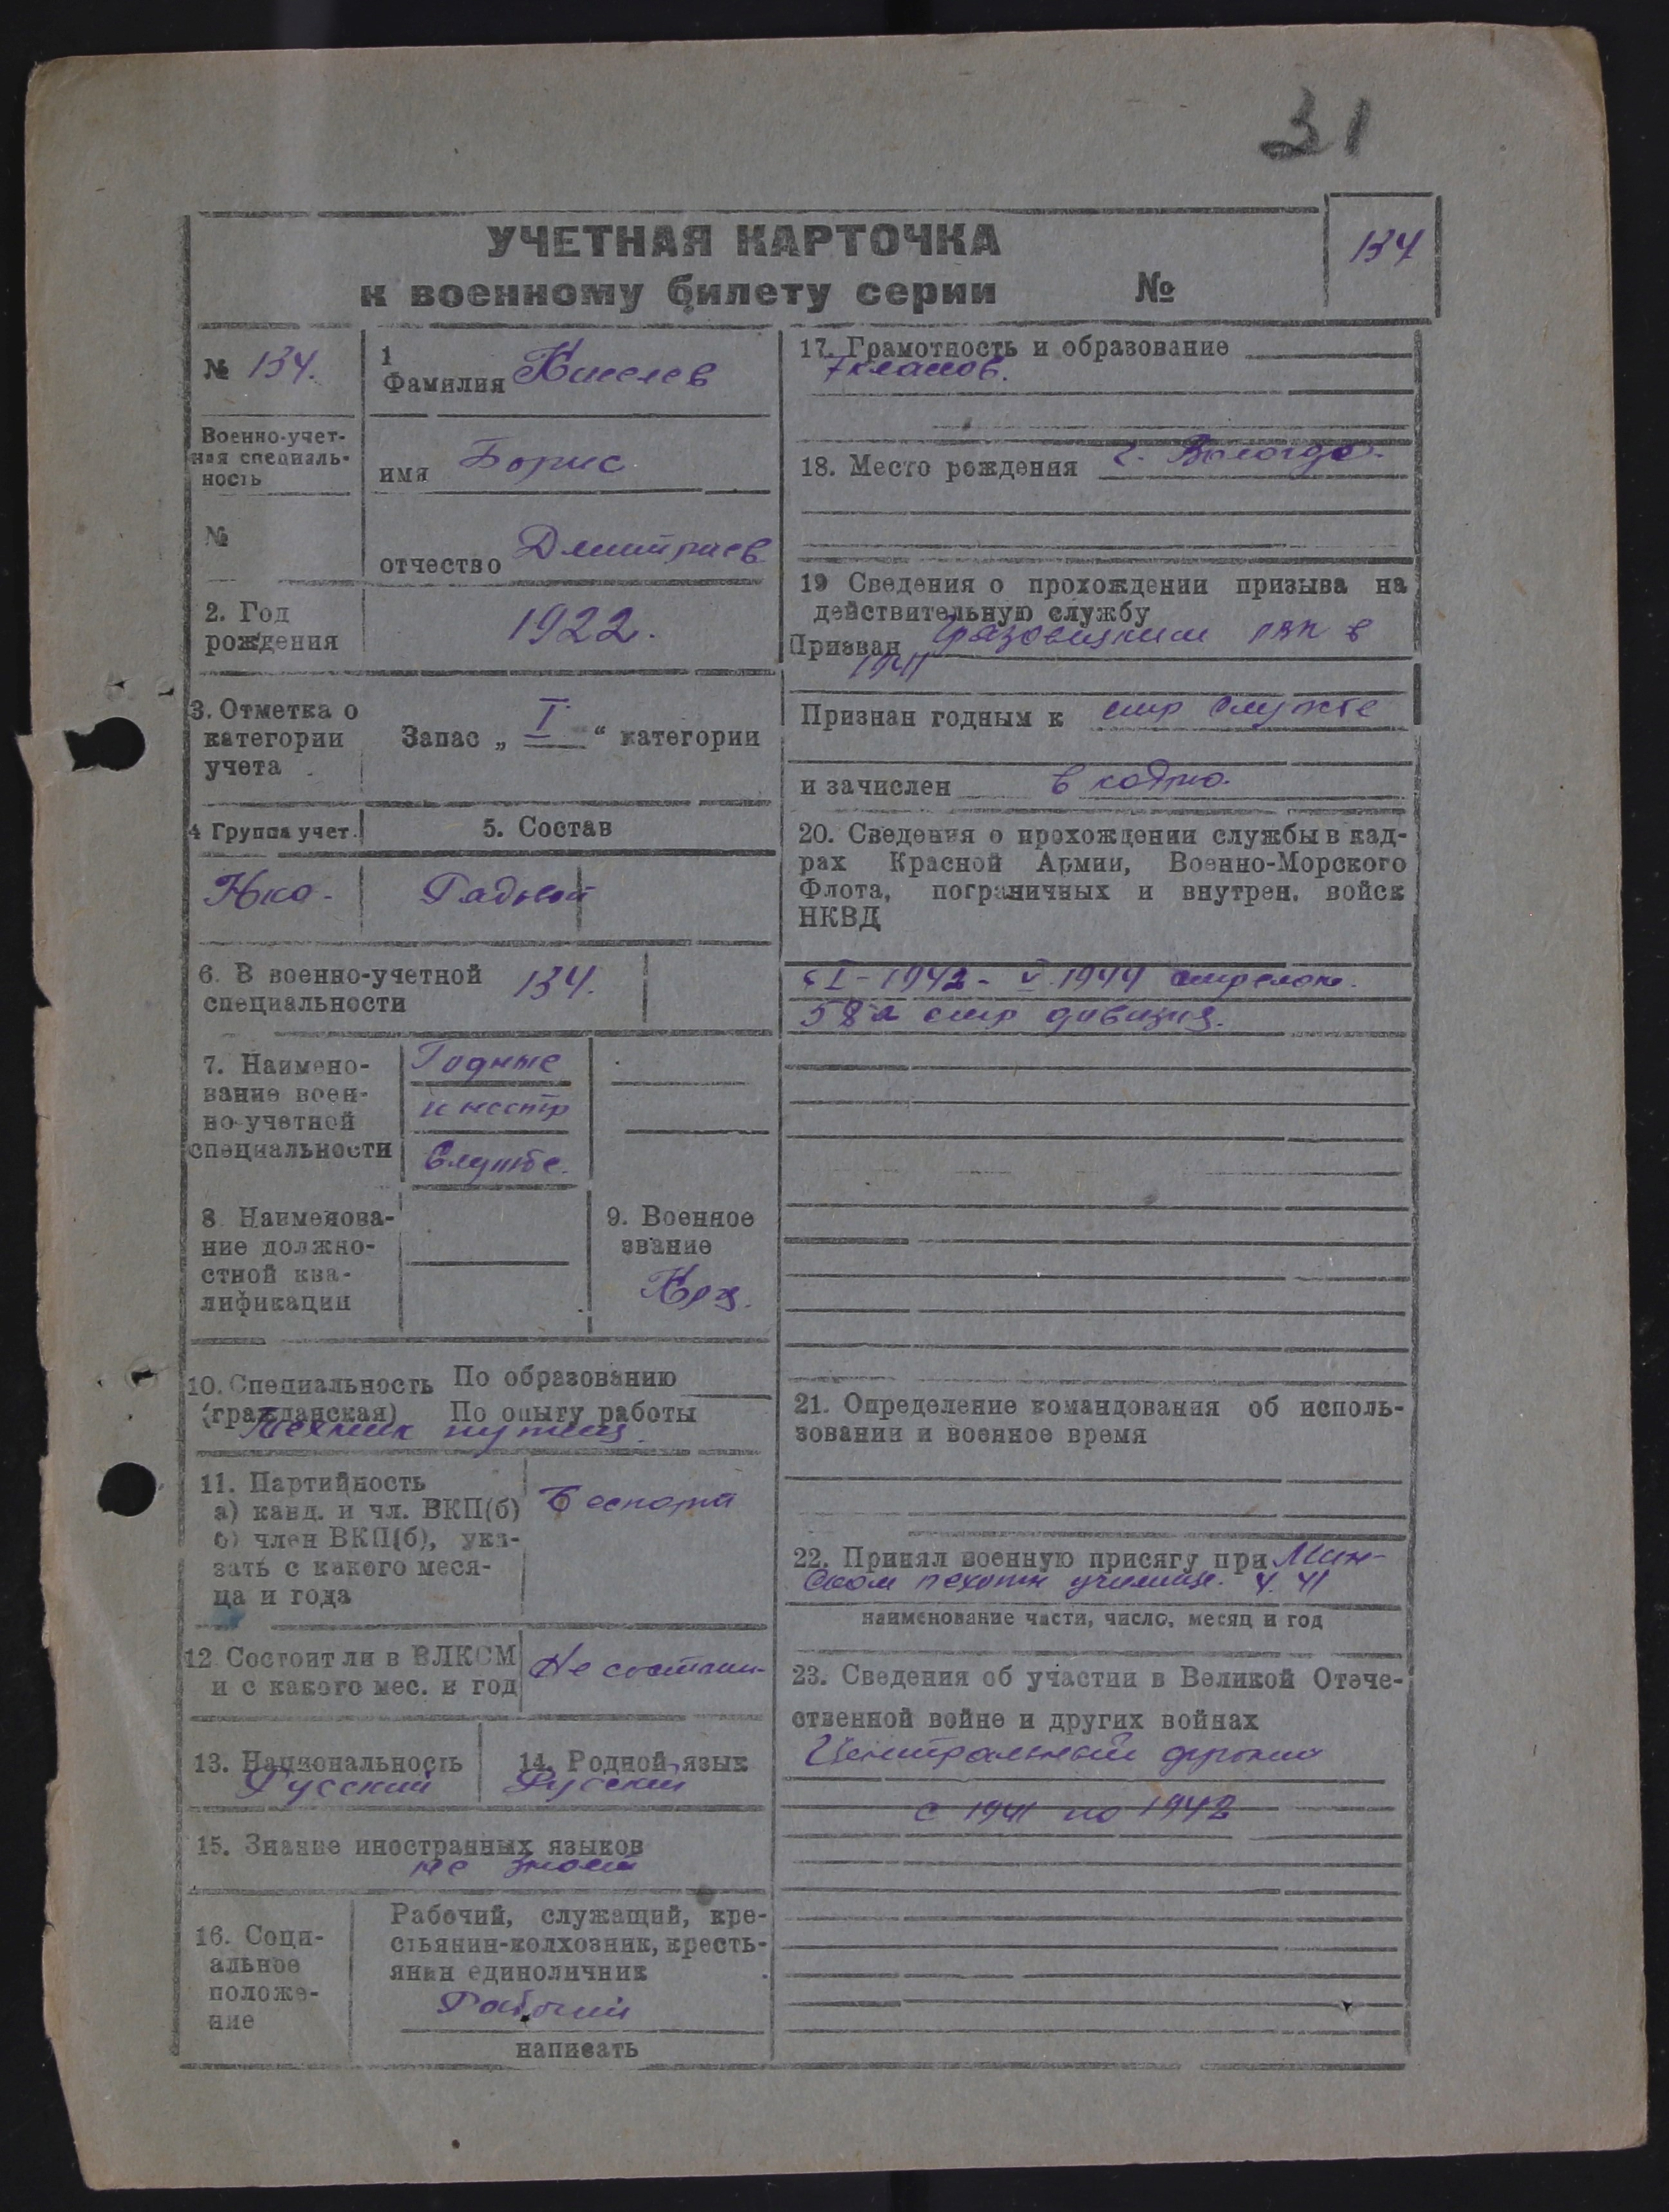 31
УЧЕТНАЯ КАРТОЧКА
к военному билету серии №
134
№ 134.
1
Фамилия Киселев
Военно-учет-
ная специаль-
ность
имя Борис
№
отчество Дмитриев
2. Год
рождения
1922.
3. Отметка о
категории
учета
Запас „ I “ категории
4 Группа учет.
5. Состав
Нка-
Рядовой
6. В военно-учетной
специальности
134.
7. Наимено-
вание воен-
но-учетной
специальности
Годные
к нестр
Службе.
8. Наименова-
ние должно-
стной ква-
лификации
9. Военное
звание
Кра.
10. Специальность По образованию
(гражданская) По опыту работы
Техник путиец
11. Партийность
а) канд. и чл. ВКП(б)
б) член ВКП(б), ука-
зать с какого меся-
ца и года
Беспарт
12. Состоит ли в ВЛКСМ
и с какого мес. и год
Не состоит
13. Национальность
Русский
14. Родной язык
Русский
15. Знание иностранных языков
не знает
16. Соци-
альное
положе-
ние
Рабочий, служащий, кре-
стьянин-колхозник, кресть-
янин единоличник
Рабочий
написать
17. Грамотность и образование
7 классов.
18. Место рождения г. Вологда.
19 Сведения о прохождении призыва на
действительную службу
Призван Грязовецким рвк в
1941
Признан годным к стр службе
и зачислен в кадры.
20. Сведения о прохождении службы в кад-
рах Красной Армии, Военно-Морского
Флота, пограничных и внутрен. войск
НКВД
с I-1942- V.1944 стрелок.
58я стр дивизия.
21. Определение командования об исполь-
зовании в военное время
22. Принял военную присягу при Мин-
ском пехотн училище. 4. 41
наименование части, число, месяц и год
23. Сведения об участии в Великой Отече-
ственной войне и других войнах
Центральный фронт
с 1941 по 1942